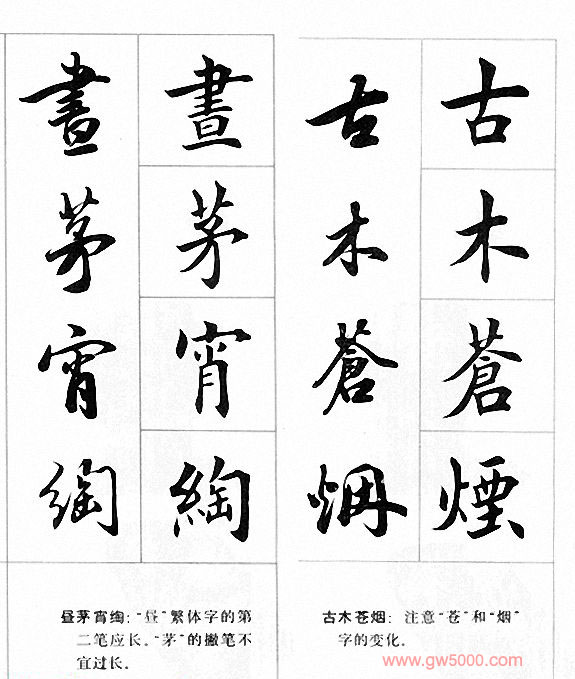 古木蒼煙
古木蒼烟
晝茅宵綯
晝茅宵綯
古木苍烟：注意“苍”和“烟”
字的变化。
昼茅宵绹：“昼”繁体字的第
二笔应长。“茅”的撇笔不
宜过长。
www.gw5000.com